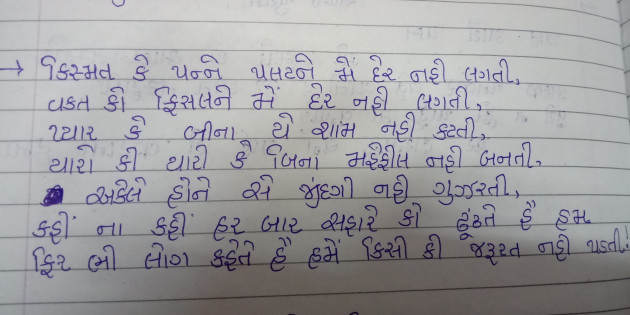 → કિસ્મત કે પન્ને પલટને મેં દેર નહી લગતી,
વકત કો ફિસલને મેં દેર નહી લગતી,
પ્યાર કે બીના યે શામ નહી કટતી,
યારો કી યારી કે બિના મહેફીલ નહી બનતી,
અકેલે હોને સે જીંદગી નહી ગુઝરતી,
કહીં ના કહીં હર બાર સહારે કો ઢૂંઢતે હૈ હમ
ફિર ભી લોગ કહેતે હૈ હમેં કિસી કી જરૂરત નહી પડતી!